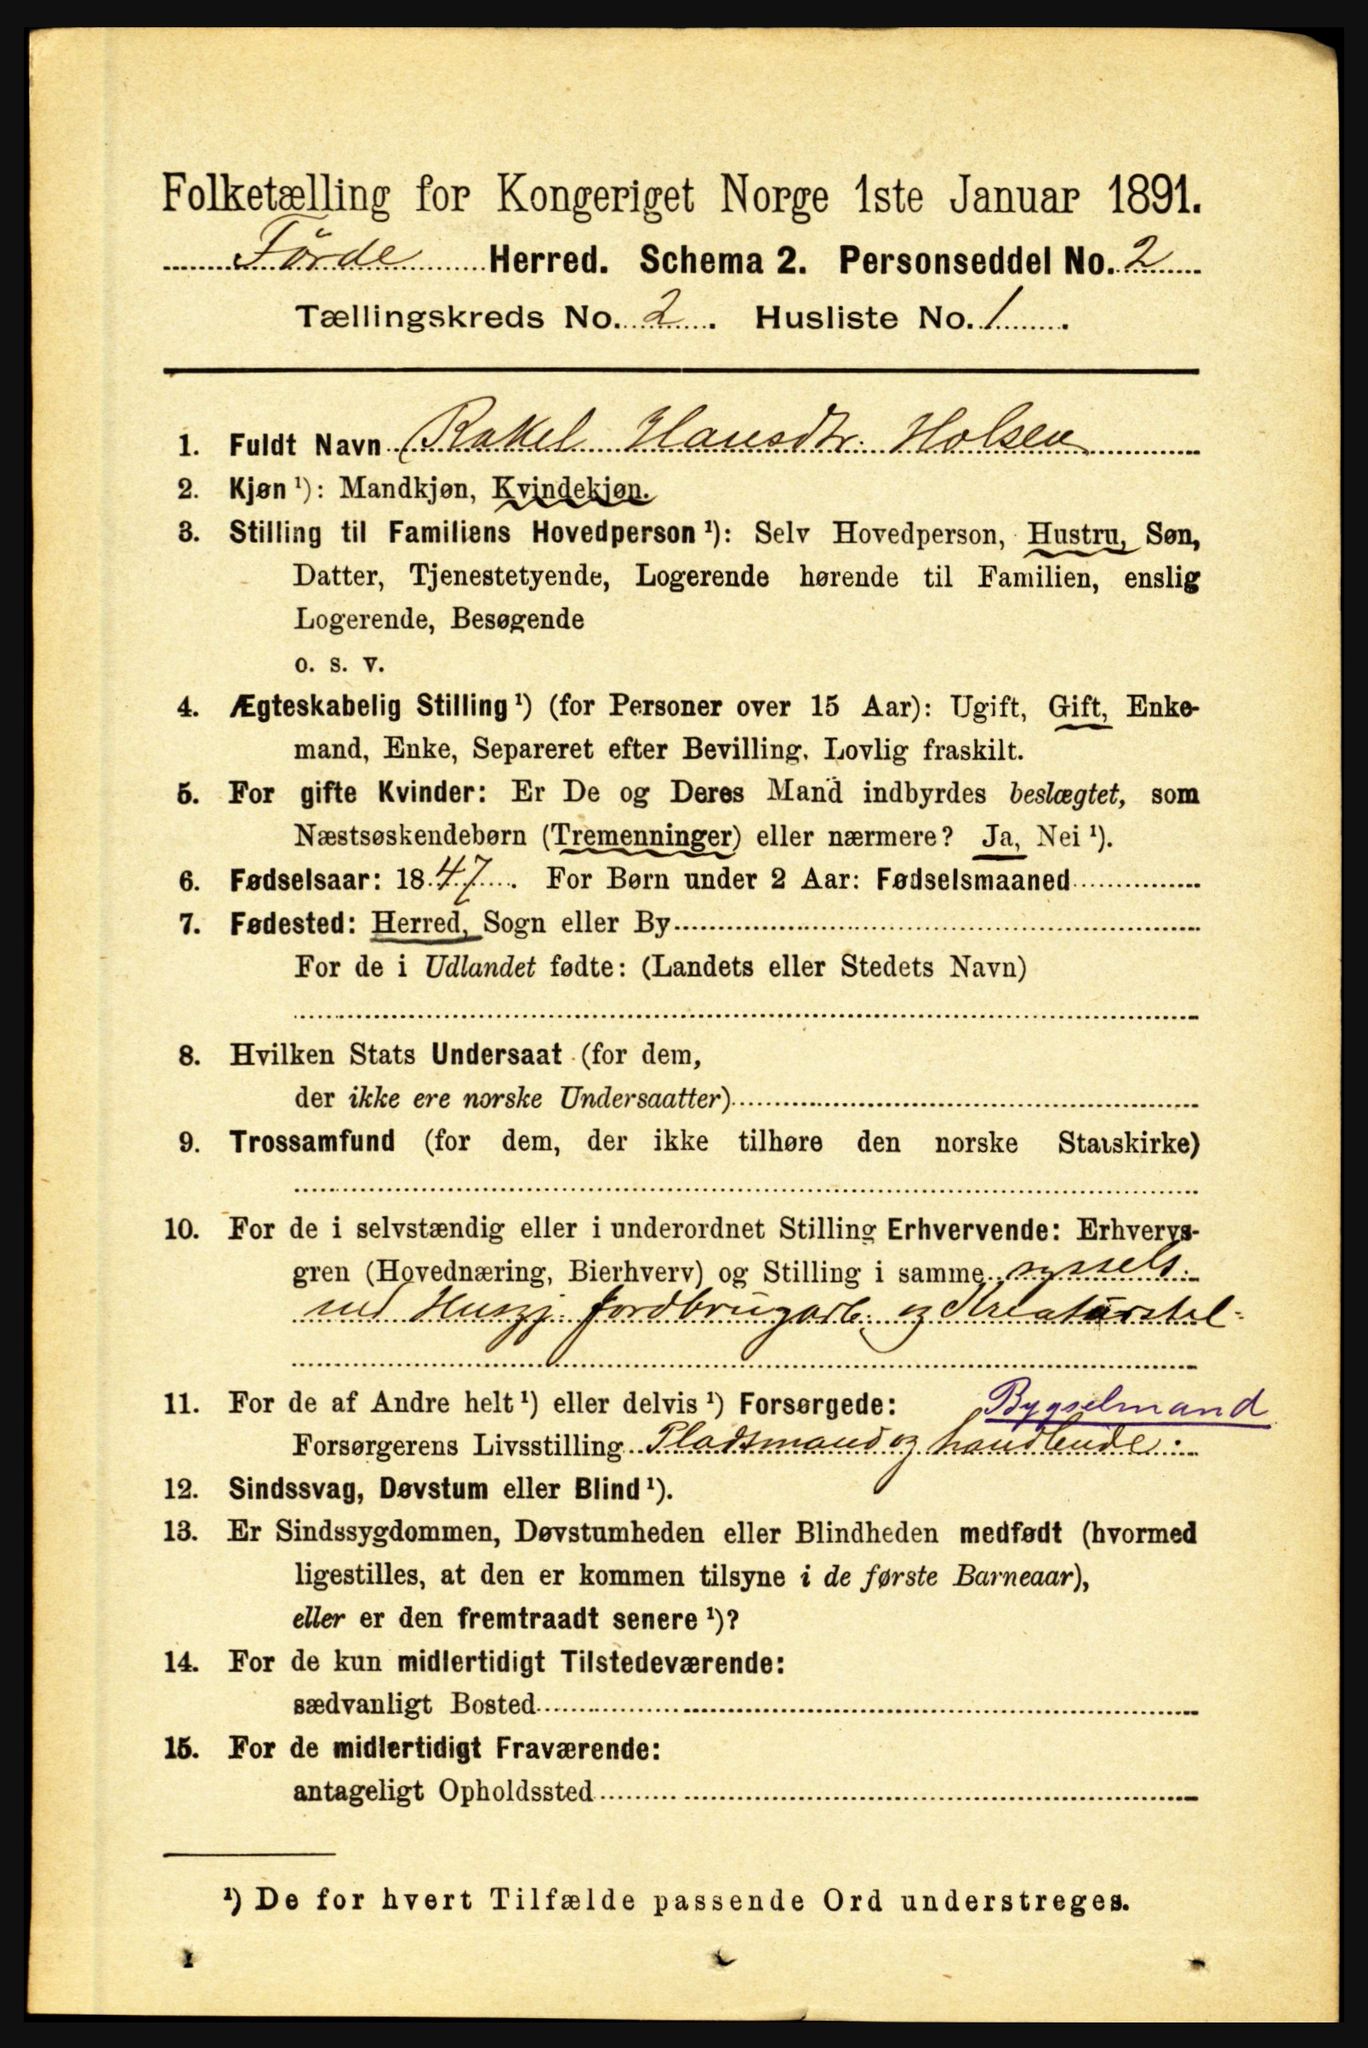 Folketælling for Kongeriget Norge 1ste Januar 1891.
Førde Herred. Schema 2. Personseddel No. 2
Tællingskreds No. 2. Husliste No. 1.
1. Fuldt Navn Rakel Hansdtr. Holsen
2. Kjøn ¹): Mandkjøn, Kvindekjøn.
3. Stilling til Familiens Hovedperson ¹): Selv Hovedperson, Hustru, Søn,
Datter, Tjenestetyende, Logerende hørende til Familien, enslig
Logerende, Besøgende
o. s. v.
4. Ægteskabelig Stilling ¹) (for Personer over 15 Aar): Ugift, Gift, Enke-
mand, Enke, Separeret efter Bevilling. Lovlig fraskilt.
5. For gifte Kvinder: Er De og Deres Mand indbyrdes beslægtet, som
Næstsøskendebørn (Tremenninger) eller nærmere? Ja, Nei ¹).
6. Fødselsaar: 1847. For Børn under 2 Aar: Fødselsmaaned
7. Fødested: Herred, Sogn eller By
For de i Udlandet fødte: (Landets eller Stedets Navn)
8. Hvilken Stats Undersaat (for dem,
der ikke ere norske Undersaatter)
9. Trossamfund (for dem, der ikke tilhøre den norske Statskirke)
10. For de i selvstændig eller i underordnet Stilling Erhvervende: Erhvervs-
gren (Hovednæring, Bierhverv) og Stilling i samme syssels.
med Husgj. Jordbrugarb. og Kreaturstel-
11. For de af Andre helt ¹) eller delvis ¹) Forsørgede: Bygselmand
Forsørgerens Livsstilling Pladsmand og handlende.
12. Sindssvag, Døvstum eller Blind ¹).
13. Er Sindssygdommen, Døvstumheden eller Blindheden medfødt (hvormed
ligestilles, at den er kommen tilsyne i de første Barneaar),
eller er den fremtraadt senere ¹)?
14. For de kun midlertidigt Tilstedeværende:
sædvanligt Bosted
15. For de midlertidigt Fraværende:
antageligt Opholdssted
¹) De for hvert Tilfælde passende Ord understreges.